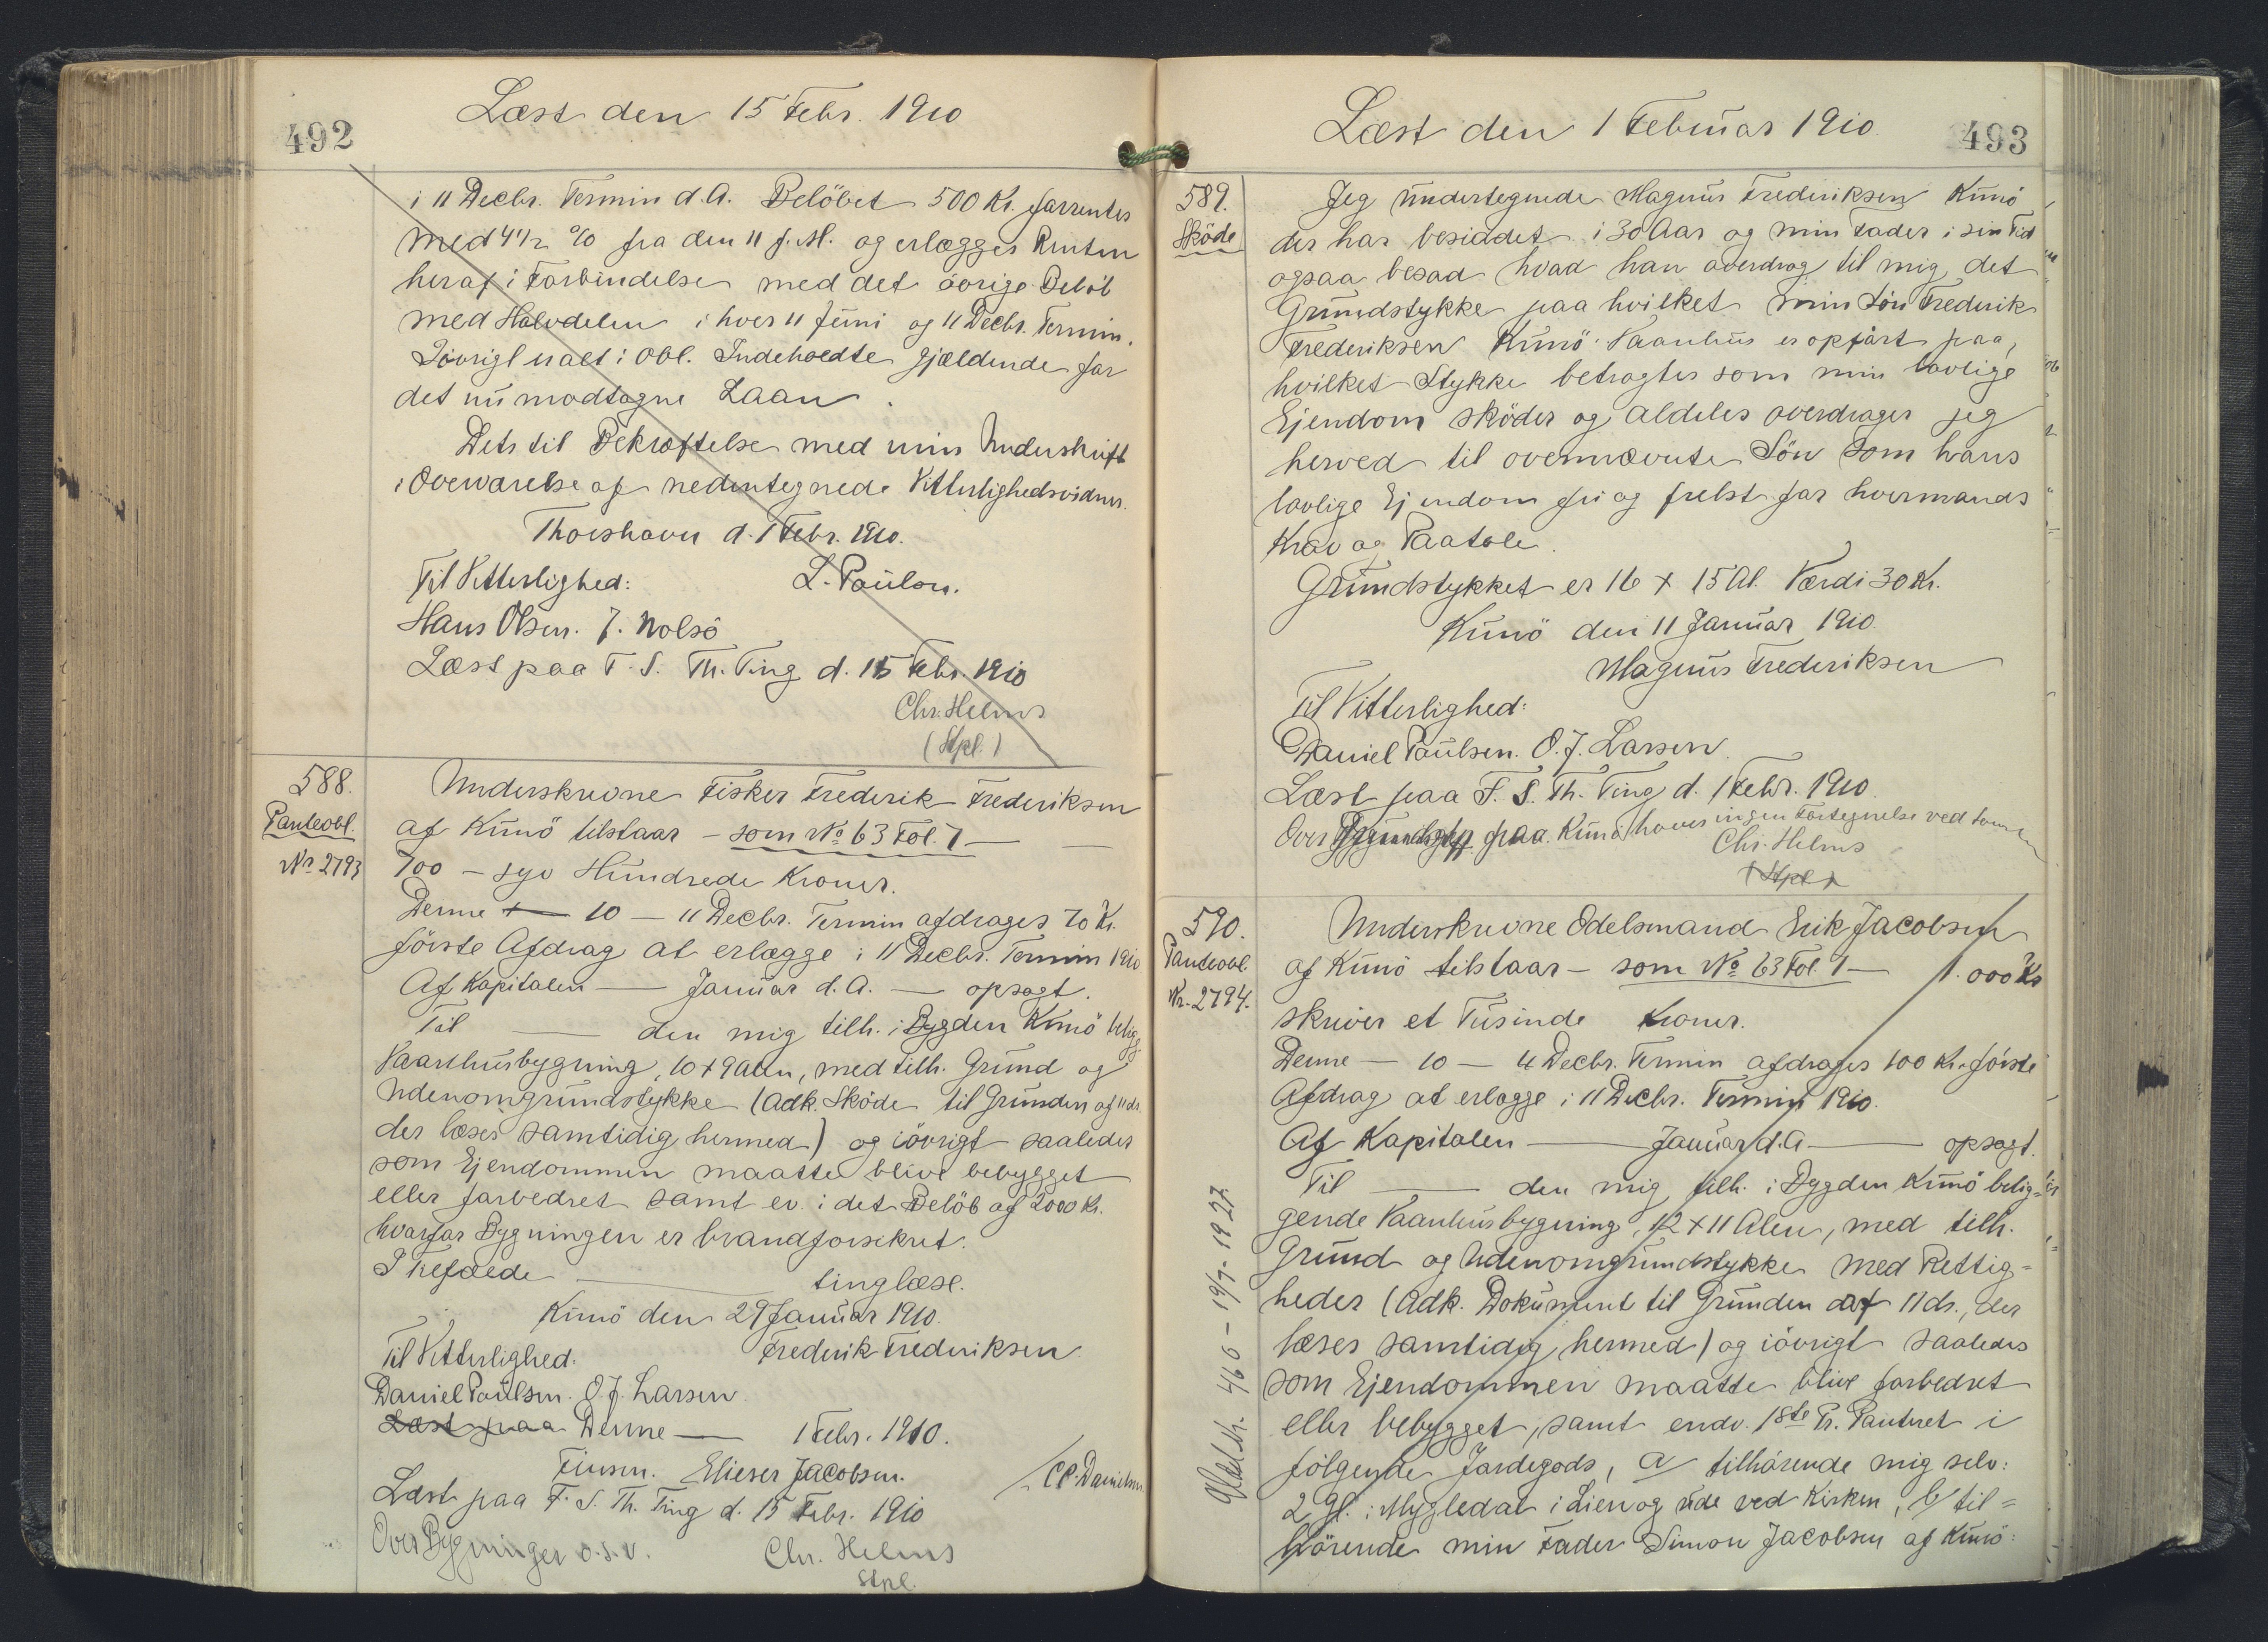 492
Læst den 15 Febr. 1910
i 11 Decbr. Termin d.A. Belöbet 500 Kr. forrentes
med 4 1/2 % fra den 11 f.M. og erlægges Renten
heraf i Forbindelse med det övrige Belöb
med Halvdelen i hver 11 Juni og 11 Decbr. Termin.
Iövrigt er alt i Obl. Indeholdte gjældende for
det nu modtagne Laan.
Dets til Bekræftelse med min Underskrift
i Overværelse af nedentegnede Vitterlighedsvidner.
Thorshavn d. 1 Febr. 1910.
Til Vitterlighed: L. Poulsen.
Hans Olsen. J. Nolsö
Læst paa F. S. Th. Ting d. 15 Febr. 1910
Chr. Helms
(Stpl.)
588.
Panteobl.
Nr. 2793
Underskrevne Fisker Frederik Frederiksen
af Kunö tilstaar - som No. 63 Fol. 1 -
700 - syv Hundrede Kroner.
Denne - 10 - 11 Decbr. Termin afdrages 70 Kr.
förste Afdrag at erlægge i 11 Decbr. Termin 1910
Af Kapitalen - Januar d.A. - opsagt.
Til - den mig tilh. i Bygden Kunö belig
Vaanhusbygning, 10 + 9 Alen, med tilh. Grund og
Udenomgrundstykke (Adk. Sköde til Grunden af 11 ds.
der læses samtidig hermed) og iövrigt saaledes
som Ejendommen maatte blive bebygget
eller forbedret samt ev. i det Belöb af 2000 Kr.
hvorfor Bygningen er brandforsikret.
I Tilfælde - tinglæse.
Kunö den 29 Januar 1910.
Til Vitterlighed: Frederik Frederiksen
Daniel Poulsen. O.J. Larsen
Læst paa Denne - 1 Febr. 1910.
Finsen. Elieser Jacobsen. / C.C. Danielsen
Læst paa F. S. Th. Ting d. 15 Febr. 1910
Over Bygninger o.s.v. Chr. Helms
Stpl.
493
Læst den 1 Februar 1910
589.
Sköde
Jeg undertegnede Magnus Frederiksen Kunö
der har besiddet i 30 Aar og min Fader i sin Tid
ogsaa besad hvad han overdrog til mig, det
Grundstykke paa hvilket min Sön Frederik
Frederiksen Kunö Vaanhus er opfört paa,
hvilket Stykke betragtes som min lovlige
Ejendom sköder og aldeles overdrager jeg
herved til ovennævnte Sön som hans
lovlige Ejendom fri og frelst for hvermands
Krav og Paatale.
Grundstykket er 16 + 15 Al. Værdi 30 Kr.
Kunö den 11 Januar 1910
Magnus Frederiksen
Til Vitterlighed:
Daniel Poulsen. O.J. Larsen
Læst paa F. S. Th. Ting d. 1 Febr. 1910
Over paa Kunö haves ingen Fortegnelse ved
Chr. Helms
(Stpl)
590.
Panteobl.
Nr. 2794.
Underskrevne Odelsmand Erik Jacobsen
af Kunö tilstaar - som No. 63 Fol. 1 - 1.000 Kr
skriver et Tusinde Kroner.
Denne - 10 - 11 Decbr. Termin afdrages 100 Kr. förste
Afdrag at erlægge i 11 Decbr. Termin 1910.
Af Kapitalen - Januar d.A - opsagt.
Til - den mig tilh. i Bygden Kunö belig=
gende Vaanhusbygning, 12 + 11 Alen, med tilh.
Grund og Udenomgrundstykke med Rettig=
heder (Adk. Dokument til Grunden af 11 ds., der
læses samtidig hermed) og iövrigt saaledes
som Ejendommen maatte blive forbedret
eller bebygget, samt endv. 1ste Pr. Panteret i
fölgende Jordegods, a/ tilhörende mig selv:
2 Gl. i Mygledal i Lien og ude ved Kirken, b/ til=
hörende min Fader Simon Jacobsen af Kunö:
466 - 19/7 - 1927.